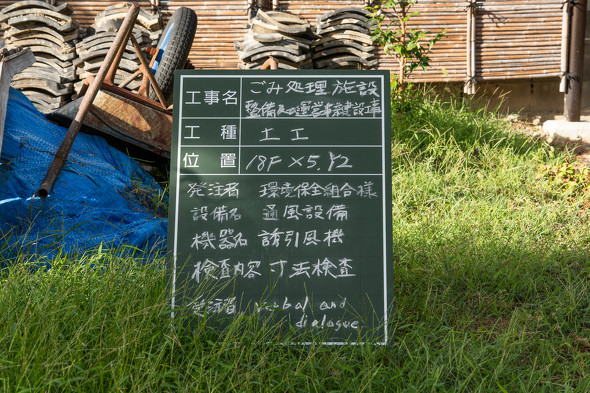 工事名 ごみ処理施設
整備及び運営事業建設工事
工種 土工
位置 18F×5.Y2
発注者 環境保全組合様
設備名 通風設備
機器名 誘引風機
検査内容 寸法検査
受注者 verbal and
dialogue